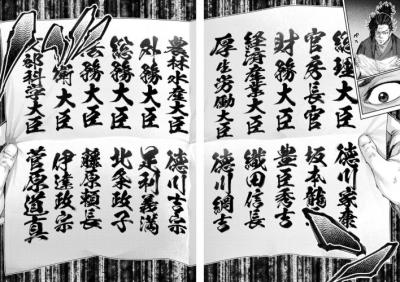 総理大臣 徳川家康
官房長官 坂本龍
財務大臣 豊臣秀吉
経済産業大臣 織田信長
厚生労働大臣 徳川綱吉
農林水産大臣 徳川吉宗
外務大臣 足利義満
総務大臣 北条政子
務大臣 藤原頼長
衛大臣 伊達政宗
部科学大臣 菅原道真